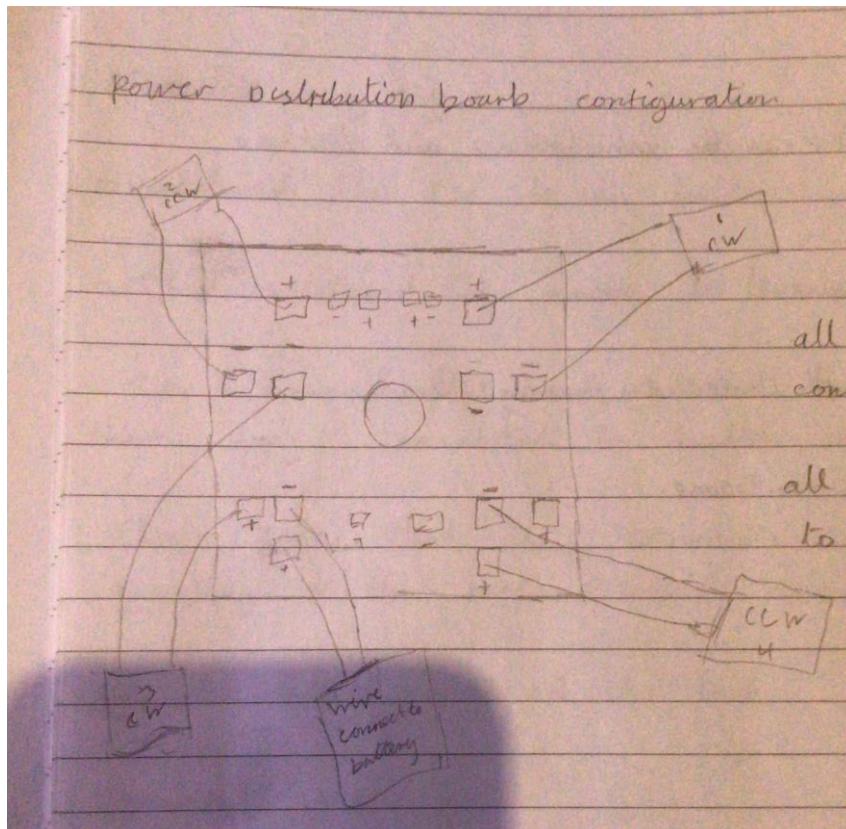 Power Distribution board configuration
2
CCW
1
CW
+ - + + - +
all
- -
- -
con
- -
all
+ +
to
+ +
CCW
4
3
CW
wire
connect to
battery